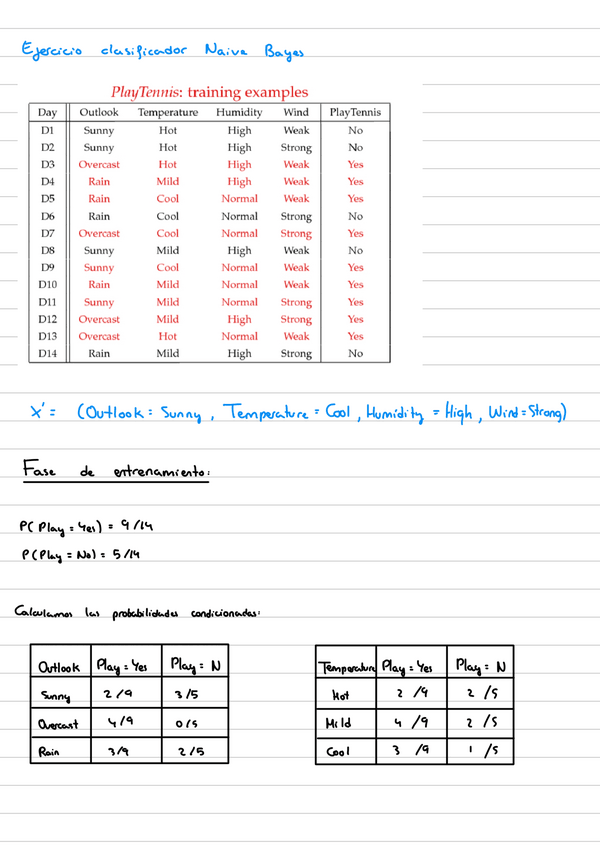 Ejercicio clasificador Naive Bayes
PlayTennis: training examples
Day Outlook Temperature Humidity Wind PlayTennis
D1 Sunny Hot High Weak No
D2 Sunny Hot High Strong No
D3 Overcast Hot High Weak Yes
D4 Rain Mild High Weak Yes
D5 Rain Cool Normal Weak Yes
D6 Rain Cool Normal Strong No
D7 Overcast Cool Normal Strong Yes
D8 Sunny Mild High Weak No
D9 Sunny Cool Normal Weak Yes
D10 Rain Mild Normal Weak Yes
D11 Sunny Mild Normal Strong Yes
D12 Overcast Mild High Strong Yes
D13 Overcast Hot Normal Weak Yes
D14 Rain Mild High Strong No
X' = (Outlook = Sunny, Temperature = Cool, Humidity = High, Wind = Strong)
Fase de entrenamiento:
P(Play = Yes) = 9/14
P(Play = No) = 5/14
Calculamos las probabilidades condicionadas:
Outlook Play = Yes Play = N
Sunny 2/9 3/5
Overcast 4/9 0/5
Rain 3/9 2/5
Temperature Play = Yes Play = N
Hot 2/9 2/5
Mild 4/9 2/5
Cool 3/9 1/5